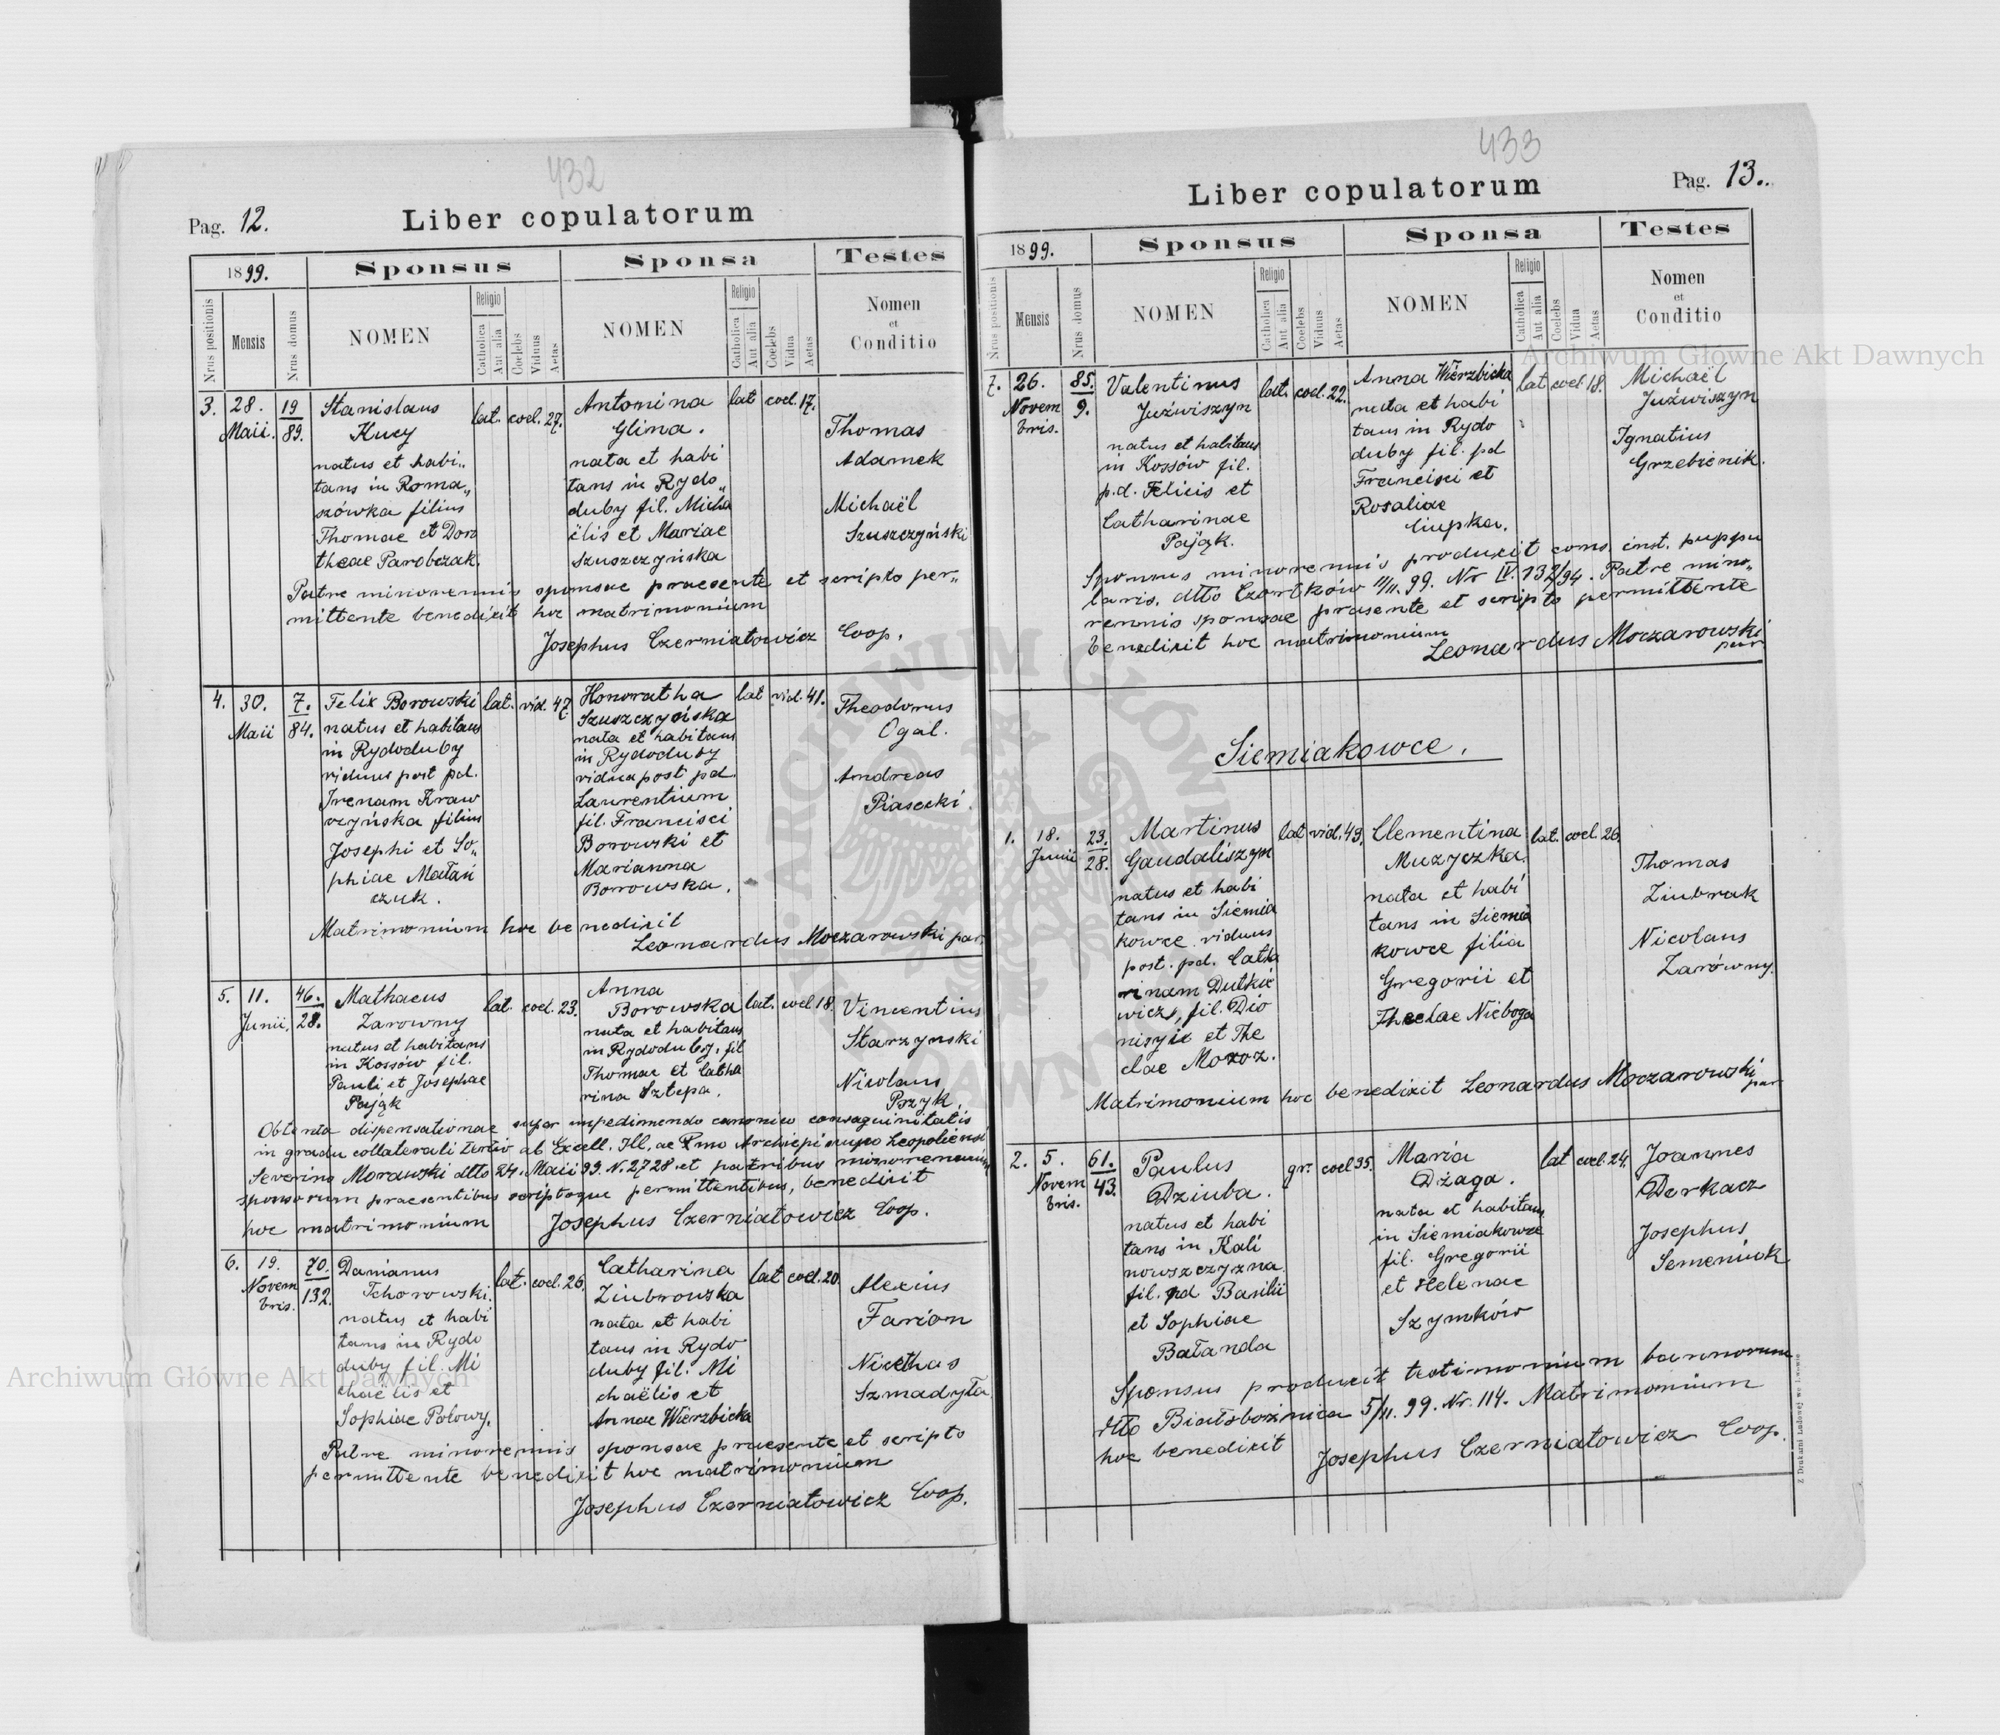 432
Pag. 12.
Liber copulatorum
1899.
Sponsus
Sponsa
Testes
Nrus positionis
Mensis
Nrus domus
NOMEN
Religio
Catholica
Aut alia
Coelebs
Viduus
Aetas
NOMEN
Religio
Catholica
Aut alia
Coelebs
Vidua
Aetas
Nomen
et
Conditio
3.
28.
Maii.
19
89.
Stanislaus
Kucy
natus et habi„
tans in Roma„
szówka filius
Thomae et Doro
theae Parobczak.
lat. coel. 27.
Antonina
Glina.
nata et habi
tans in Rydo„
duby fil. Micha
ëlis et Mariae
Szuszczyńska
lat coel. 17.
Thomas
Adamek
Michaël
Szuszczyński
Patre minorennis sponsae praesente et scripto per„
mittente benedixit hoc matrimonium
Josephus Czerniatowicz Coop.
4.
30.
Maii
7.
84.
Felix Borowski
natus et habitans
in Rydoduby
viduus post pd.
Irenam Kraw
czyńska filius
Josephi et So„
phiae Matań
czuk.
lat. vid. 47.
Honoratha
Szuszczyńska
nata et habitans
in Rydoduby
vidua post pd.
Laurentium
fil. Francisci
Borowski et
Marianna
Borowska.
lat vid. 41.
Theodorus
Ogal.
Andreas
Piasecki.
Matrimonium hoc benedixit
Leonardus Moczarowski par.
5.
11.
Junii.
46.
28.
Mathaeus
Zarowny
natus et habitans
in Kossów fil.
Pauli et Josephae
Pająk
lat. coel. 23.
Anna
Borowska
nata et habitans
in Rydoduby, fil
Thomae et Catha
rina Sztepa.
lat. coel 18.
Vincentius
Starzynski
Nicolaus
Pszyk.
Obtenta dispensationae super impedimendo canonico consaguinitatis
in gradu collaterali tertio ab Excell. Ill. ac Rmo Archiepiscupo Leopoliensi
Severino Morawski dtto 24. Maii 99. N. 2728 et patribus minorennium
sponsorum praesentibus scriptoque permittentibus, benedixit
hoc matrimonium
Josephus Czerniatowicz Coop.
6.
19.
Novem
bris.
70.
132.
Damianus
Tchorowski.
natus et habi
tans in Rydo
duby fil. Mi
chaëlis et
Sophiae Połowy.
lat. coel. 26.
Catharina
Ziubrowska
nata et habi
tans in Rydo
duby fil. Mi
chaëlis et
Annae Wierzbicka
lat coel. 20.
Alexius
Farion
Nicethas
Szmadyła.
Patre minorennis sponsae praesente et scripto
permittente benedixit hoc matrimonium
Josephus Czerniatowicz Coop.
433
Liber copulatorum
Pag. 13.
1899.
Sponsus
Sponsa
Testes
Nrus positionis
Mensis
Nrus domus
NOMEN
Religio
Catholica
Aut alia
Coelebs
Viduus
Aetas
NOMEN
Religio
Catholica
Aut alia
Coelebs
Vidua
Aetas
Nomen
et
Conditio
7.
26.
Novem
bris.
85.
9.
Valentinus
Juźwiszyn
natus et habitans
in Kossów fil.
p.d. Felicis et
Catharinae
Pająk.
lat. coel. 22.
Anna Wierzbicka
nata et habi
tans in Rydo
duby fil. pd
Francisci et
Rosaliae
Ciupka.
lat coel. 18.
Michaël
Juźwiszyn
Ignatius
Grzebienik.
Sponsus minorennis produxit coms. inst. puppu
laris. dtto Czortków 11/11. 99. Nr IV. 132/94. Patre mino„
rennis sponsae prasente et scripto permittente
benedixit hoc matrimonium
Leonardus Moczarowski
par
Siemiakowce.
1.
18.
Junii
23.
28.
Martinus
Gaudaliszyn
natus et habi
tans in Siemia
kowce viduus
post. pd. Catha
rinam Dutkie
wicz, fil. Dio
nisyie et The
clae Moroz.
lat vid. 43.
Clementina
Muzyczka.
nata et habi
tans in Siemia
kowce filia
Gregorii et
Theclae Nieboga
lat. coel. 26.
Thomas
Ziubrak
Nicolaus
Zarówny.
Matrimonium hoc benedixit Leonardus Moczarowski
par
2.
5.
Novem
bris.
61.
43.
Paulus
Dziuba.
natus et habi
tans in Kali
nowszczyzna.
fil. pd Basilii
et Sophiae
Bałanda
gr. coel 35.
Maria
Dżaga.
nata et habitans
in Siemiakowce
fil. Gregorii
et Helenae
Szymków
lat coel. 24.
Joannes
Derkacz
Josephus
Semeniuk
Sponsus produxit testimonium bannorum
dtto Białobożnica 5/11. 99. Nr. 114. Matrimonium
hoc benedixit
Josephus Czerniatowicz Coop.
Z Drukarni Ludowej we Lwowie
Archiwum Główne Akt Dawnych
Archiwum Główne Akt Dawnych
ARCHIWUM GŁÓWNE AKT DAWNYCH